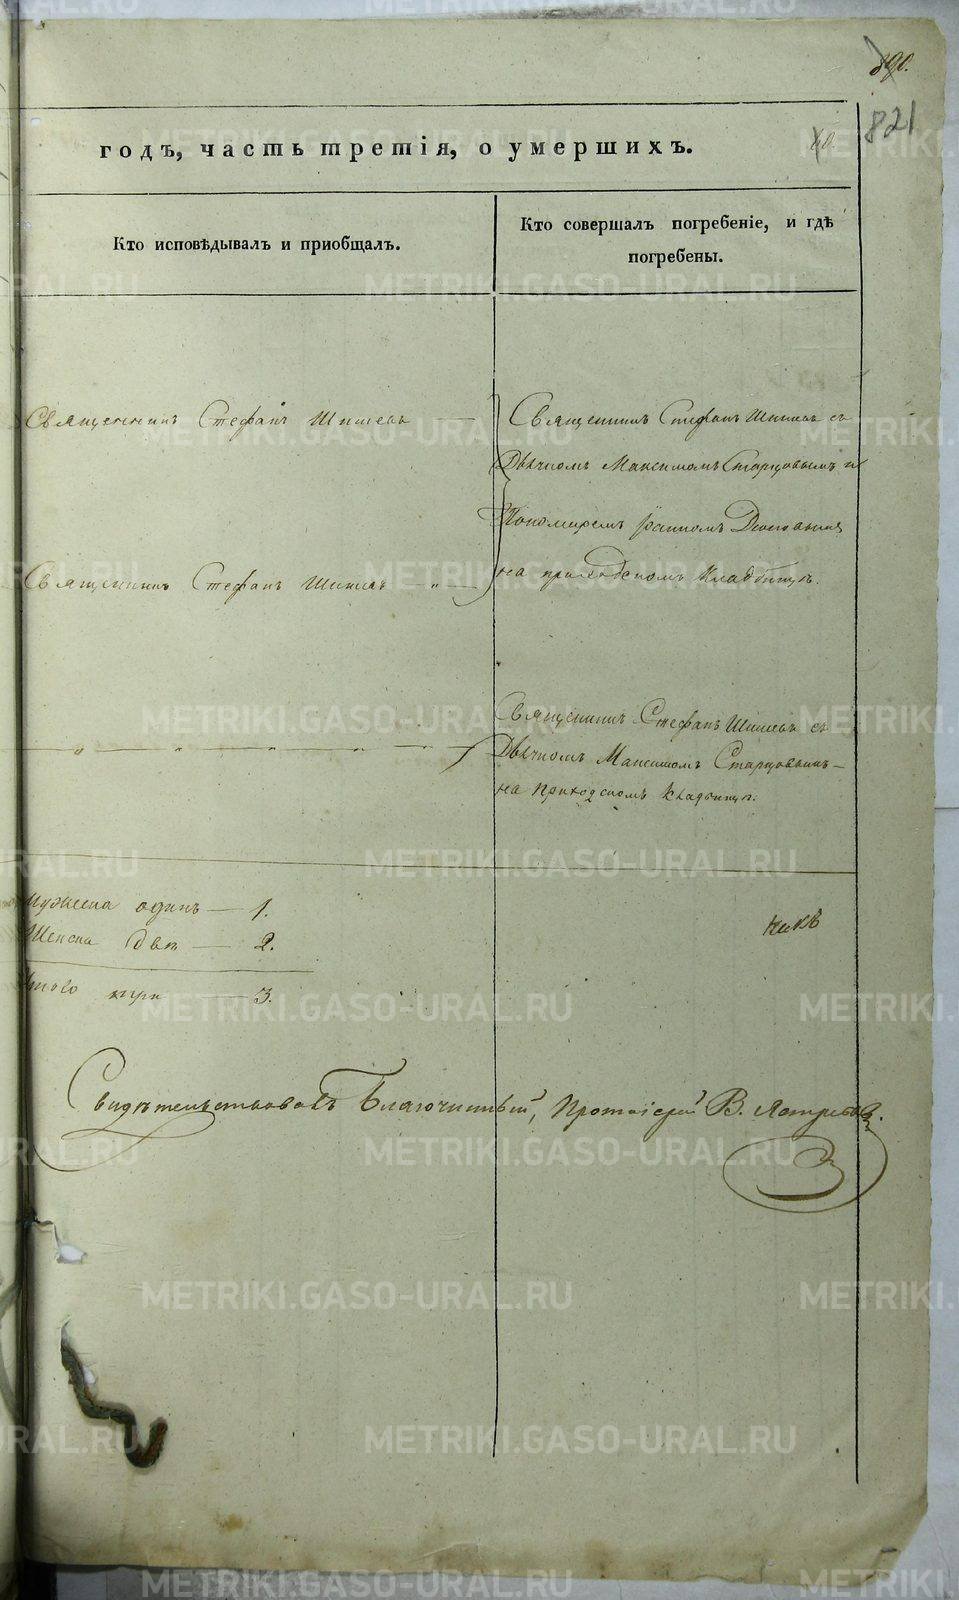 390.
821
годъ, часть третія, о умершихъ.
40.
Кто исповѣдывалъ и пріобщалъ.
Кто совершалъ погребеніе, и гдѣ
погребены.
Священникъ Стефанъ Шишевъ
Священникъ Стефанъ Шишевъ съ
Дьячкомъ Максимомъ Старцовымъ и
Пономаремъ
на приходскомъ кладбищѣ.
Священникъ Стефанъ Шишевъ
Священникъ Стефанъ Шишевъ съ
Дьячкомъ Максимомъ Старцовымъ
на приходскомъ кладбищѣ.
мужеска одинъ — 1.
Женска двѣ — 2.
Итого три — 3.
Свидѣтельствовалъ Благочинный, Протоіерей В. Ястребовъ.
METRIKI.GASO-URAL.RU